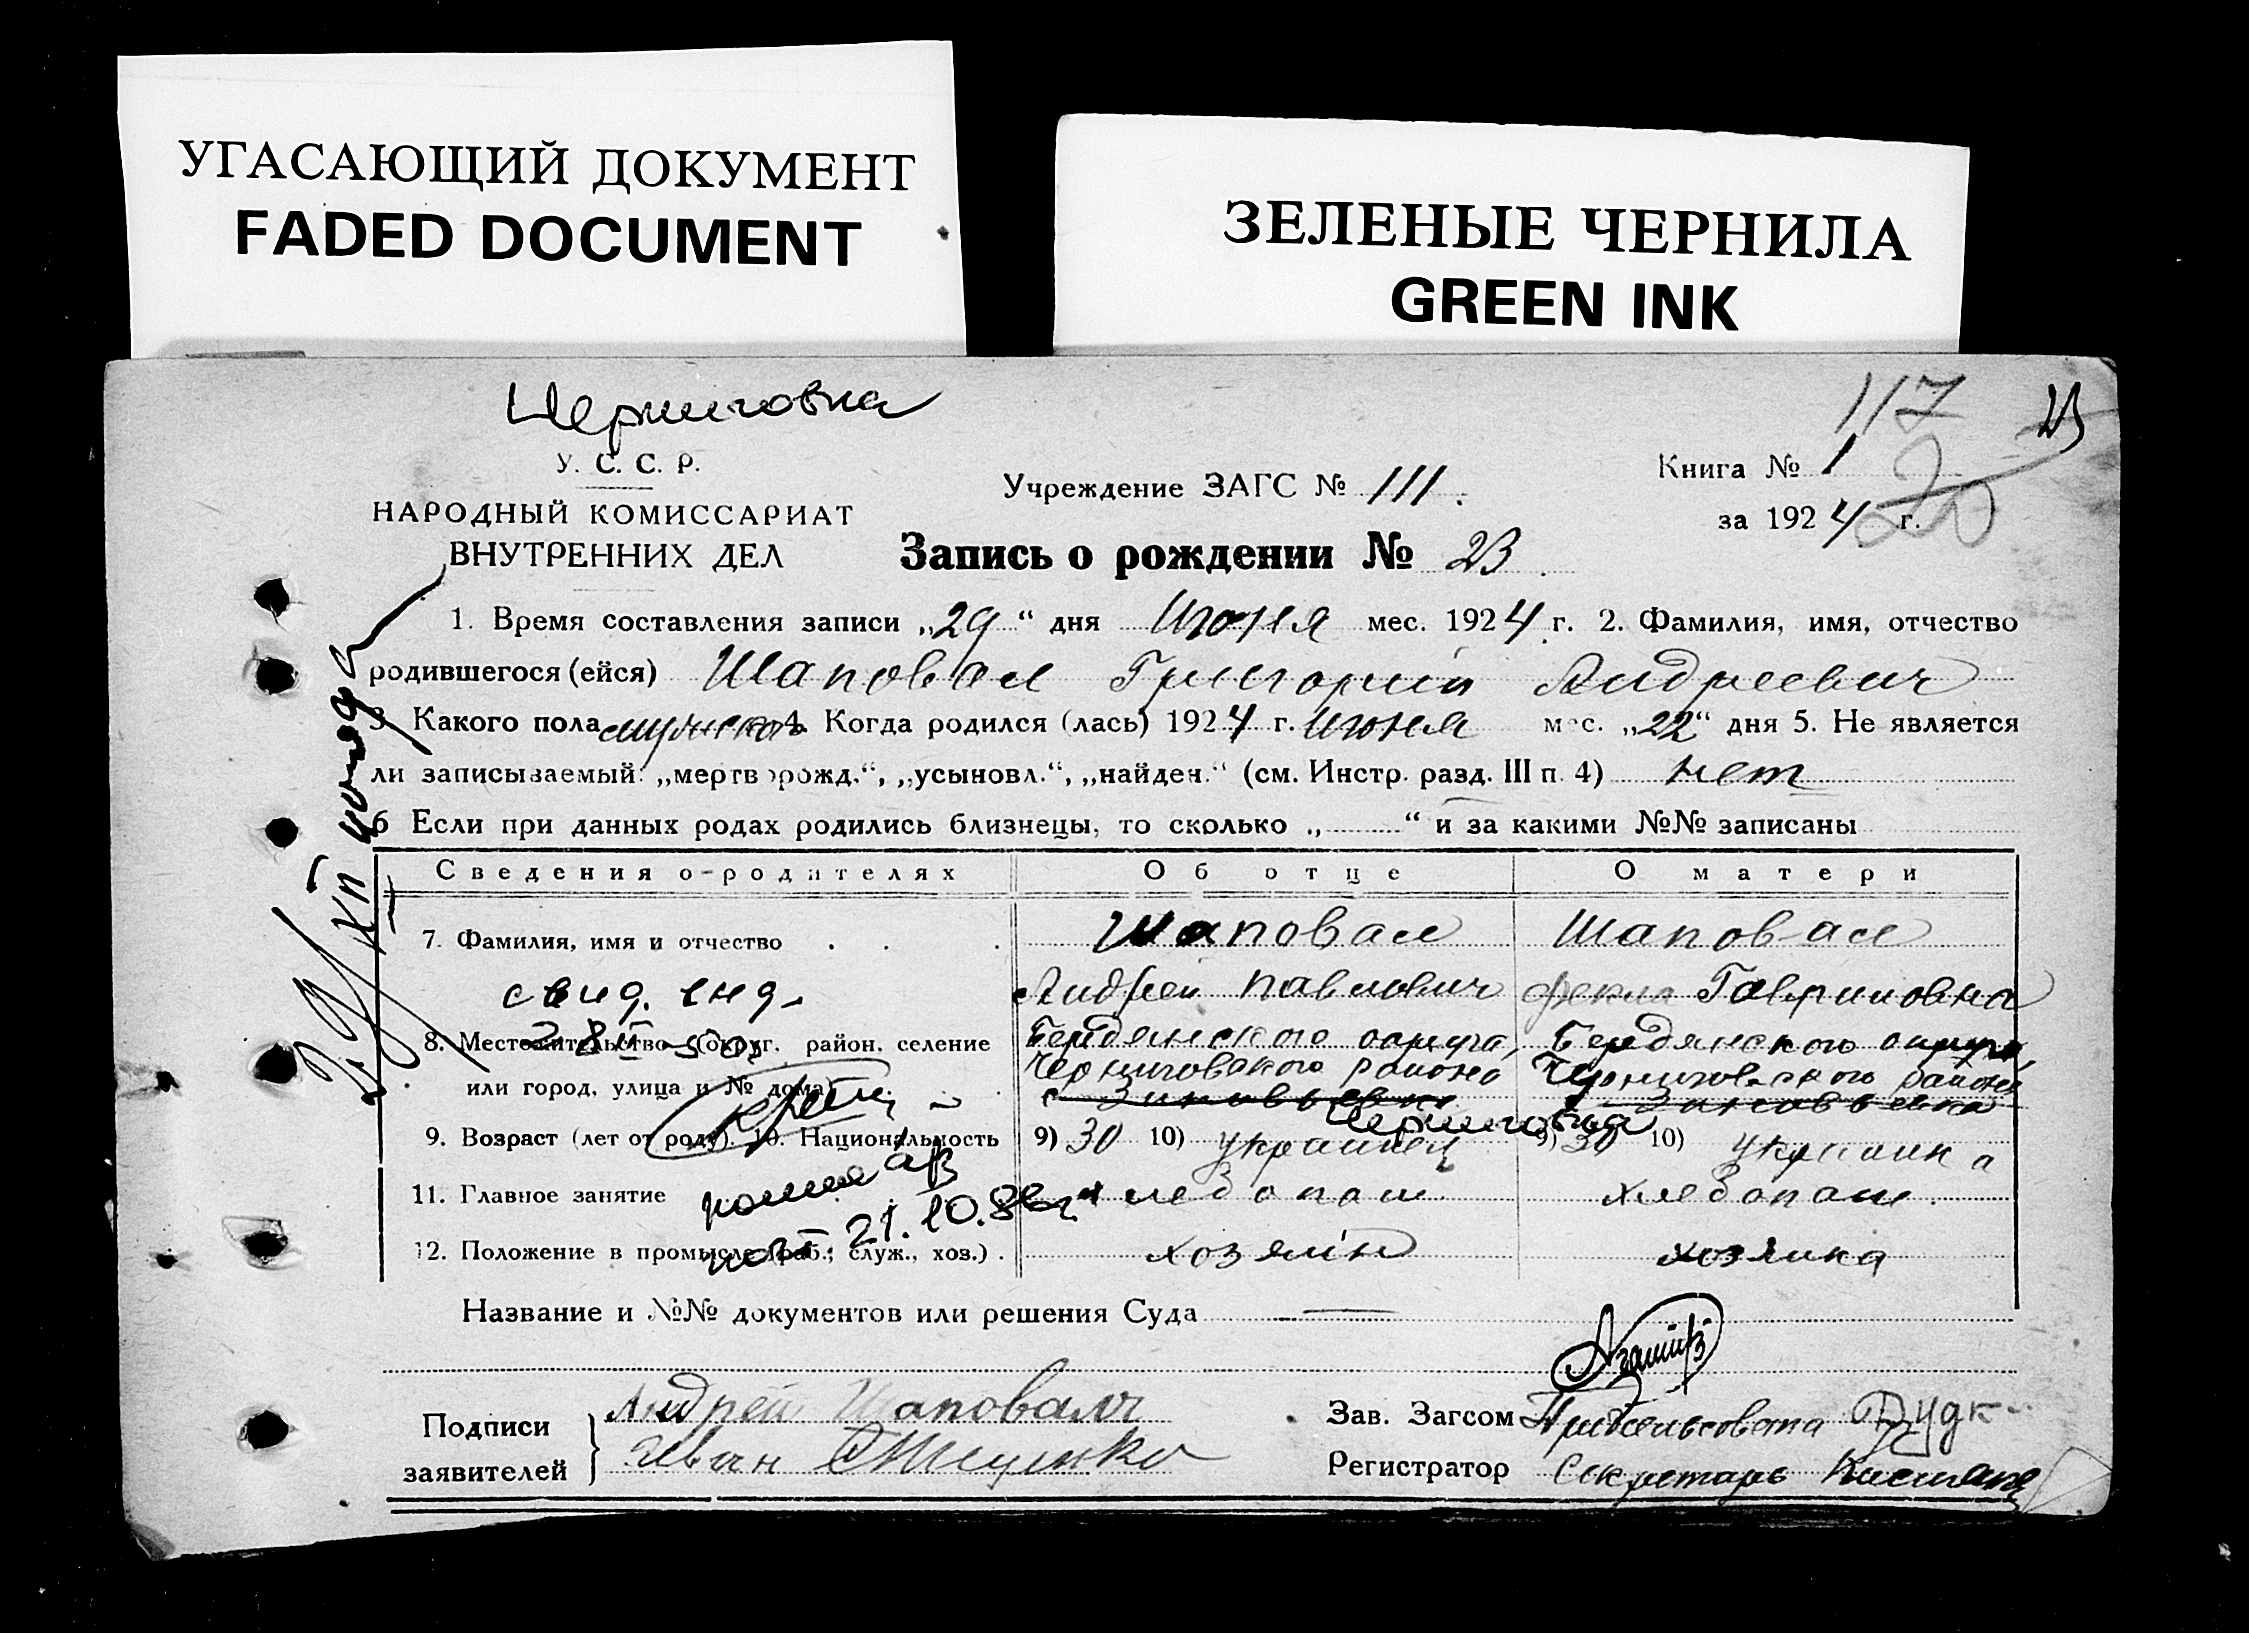 УГАСАЮЩИЙ ДОКУМЕНТ
FADED DOCUMENT
ЗЕЛЕНЫЕ ЧЕРНИЛА
GREEN INK
Черниговка
117
23
У. С. С. Р.
НАРОДНЫЙ КОМИССАРИАТ
ВНУТРЕННИХ ДЕЛ
Учреждение ЗАГС № 111.
Книга № 1
за 1924 г.
Запись о рождении № 23.
1. Время составления записи „29“ дня Июня мес. 1924 г. 2. Фамилия, имя, отчество
родившегося (ейся) Шаповал Григорий Андреевич
3 Какого пола мужского 4. Когда родился (лась) 1924 г. Июня мес. „22“ дня 5. Не является
ли записываемый: „мертворожд.“, „усыновл.“, „найден.“ (см. Инстр. разд. III п. 4) нет
6 Если при данных родах родились близнецы, то сколько „ “ и за какими №№ записаны
Сведения о родителях Об отце О матери
7. Фамилия, имя и отчество Шаповал Шаповал
Андрей Павлович Фекла Гавриловна
свид. выд.
8. Местожительство (округ, район, селение Бердянского округа, Бердянского округа,
или город, улица и № дома) Черниговского района Черниговского района
с Зиновьевка с Зиновьевка
Черниговка
9. Возраст (лет от роду). 10. Национальность 9) 30 10) украинец 9) 30 10) украинка
11. Главное занятие хлебопаш хлебопаш.
копия а/в
21.10.86
12. Положение в промысле (раб., служ., хоз.) . хозяін хозяика
Название и №№ документов или решения Суда
Подписи заявителей
Андрей Шаповал
Иван
Зав. Загсом Пред сельсовета Дудк
Регистратор Секретарь